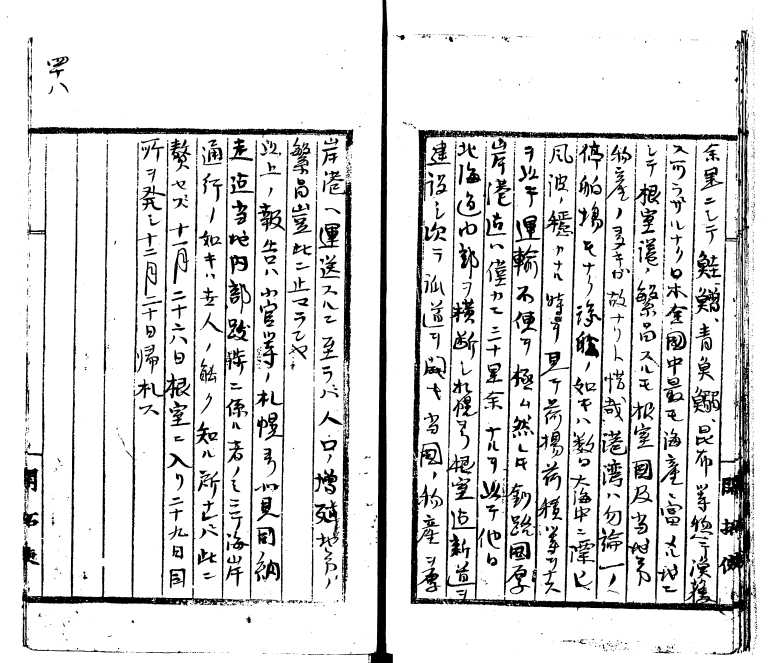 余里ニシテ鮭、鱒、青魚、鰯、昆布等惣テ漁獲
スヘカラザルナク日本全国中最モ海産ニ富シ地ニ
シテ根室港ノ繁昌スルモ根室国及当地等
物産ノ多キガ故ナリト惜哉港湾ハ勿論一ノ
停舶場モナク漁船ノ如キハ数日大海中ニ漂ヒ
風波ノ穏カナル時ヲ見テ荷揚荷積等
ヲ以テ運輸不便ヲ極ム然レ𪜈釧路国厚
岸港迠ハ僅カニ三十里余ナルヲ以テ他日
北海道内部ヲ横断シ札幌ヨリ根室迠新道ヲ
建設シ次テ派道ヲ開キ当国ノ物産ヲ厚
開拓使
岸港ヘ運送スルニ至ラバ人口ノ増殖地方ノ
繁昌豈此ニ止マランヤ
以上ノ報告ハ小官等札幌ヨリ北見国網
走迠当地内部跋渉ニ係ル者ノミニテ海岸
通行ノ如キハ世人ノ能ク知ル所ナレバ此ニ
贅セズ十一月二十六日根室ニ入リ二十九日同
所ヲ発シ十二月二十日帰札ス
開拓使
四十八